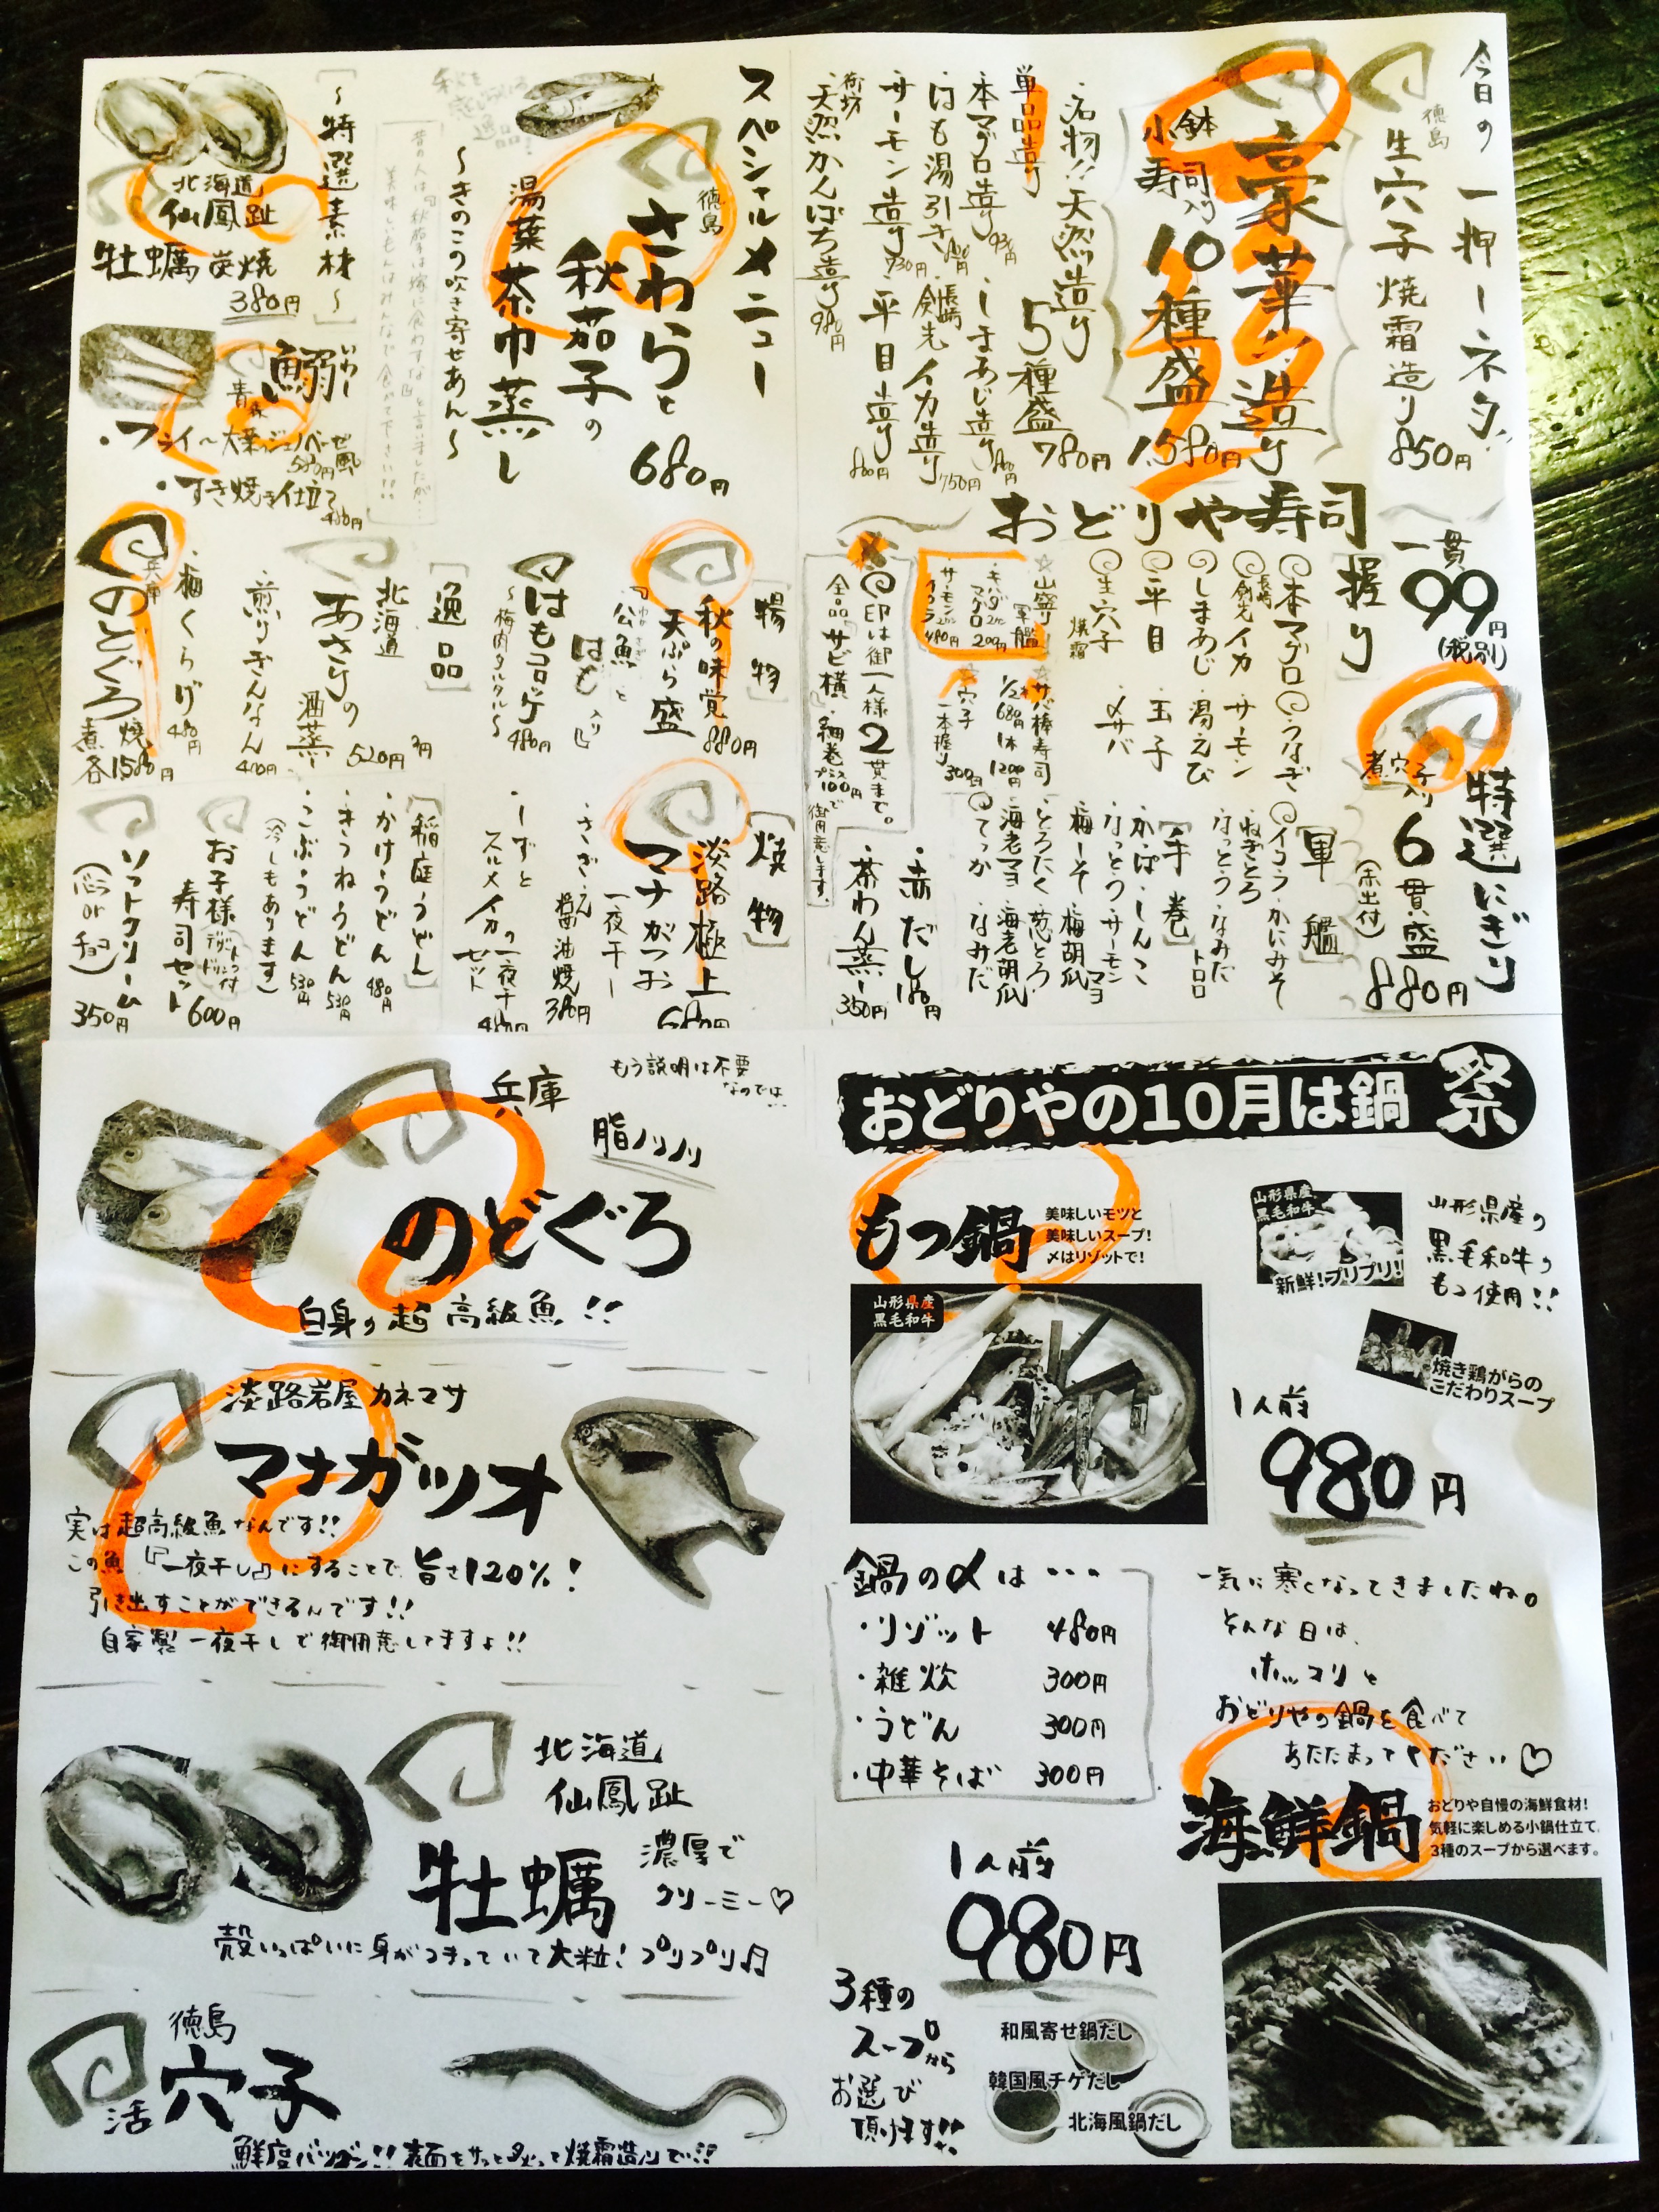 今日の一押しネタ
徳島
生穴子焼霜造り 850円
豪華造り
小鉢
寿司入り
10種盛 1580円
名物!!天然造り
5種盛 780円
単品造り
本マグロ造り
・しまあじ造り
はも湯引き
長崎
剣先イカ造り 750円
サーモン造り
平目造り 800円
天然かんぱち造り 980円
おどりや寿司
一貫99円(税別)
[握り]
本マグロ
うなぎ
長崎
剣先イカ
サーモン
しまあじ
湯えび
平目
玉子
生穴子
焼霜
〆サバ
☆山盛り軍艦☆
サーモン
イクラ
480円
☆サバ棒寿司
1/2本680円 1本1200円
☆穴子一本握り 300円
印は御一人様2貫まで。
特選にぎり
煮穴子入り
6貫盛
(赤出付)
880円
[軍艦]
イクラ
かにみそ
ねぎとろ
なっとう
なみだ
[手巻]
トロロ
かっぱ
しんこ
なっとう
サーモンマヨ
梅しそ
梅胡瓜
とろたく
葱とろ
海老マヨ
海老胡瓜
てっか
なみだ
・赤だし 180円
・茶わん蒸し 350円
スペシャルメニュー
徳島
さわらと
秋茄子の
湯葉茶巾蒸し
680円
〜きのこの吹き寄せあん〜
[〜特選素材〜]
北海道
仙鳳趾
牡蠣炭焼
380円
いわし
鰯
青森
・フライ〜大葉のジェノベーゼ風
580円
・すき焼き仕立て
480円
[揚物]
秋の味覚
天ぷら盛
880円
公魚と
はも
はもコロッケ
〜梅肉タルタル〜
480円
[逸品]
北海道
あさりの
酒蒸し
520円
・煎りぎんなん
400円
・梅くらげ
480円
兵庫
のどぐろ
焼
煮
各1580円
[焼物]
淡路極上
マナがつお
一夜干し
680円
・さざえ
醤油焼
380円
・しずと
スルメイカの一夜干し
セット
[稲庭うどん]
・かけうどん 480円
・きつねうどん 530円
・こぶうどん 530円
(冷しもあります)
お子様
寿司セット 600円
ソフトクリーム
350円
兵庫
もう説明は不要
なのでは…
脂ノリノリ
のどぐろ
白身の超高級魚!!
淡路岩屋 カネマサ
マナガツオ
実は超高級魚なんです!!
この魚『一夜干し』にすることで、旨さ120%!
引き出すことができるんです!!
自家製一夜干しで御用意してますよ!!
北海道
仙鳳趾
牡蠣
濃厚で
クリーミー♡
殻いっぱいに身がつまっていて大粒!プリプリ♬
徳島
活
穴子
鮮度バツグン!!表面をサッと炙って焼霜造りで!!
おどりやの10月は鍋祭
もつ鍋
美味しいモツと
美味しいスープ!
〆はリゾットで!
山形県産
黒毛和牛
山形県産
黒毛和牛
新鮮!プリプリ!
山形県産の
黒毛和牛の
もつ使用!!
焼き鶏がらの
こだわりスープ
1人前
980円
鍋の〆は…
・リゾット 480円
・雑炊 300円
・うどん 300円
・中華そば 300円
一気に寒くなってきましたね。
そんな日は、
ホッコリと
おどりやの鍋を食べて
あたたまってください♡
海鮮鍋
おどりや自慢の海鮮食材!
気軽に楽しめる小鍋仕立て。
3種のスープから選べます。
1人前
980円
3種の
スープから
お選び
頂けます!!
和風寄せ鍋だし
韓国風チゲだし
北海風鍋だし